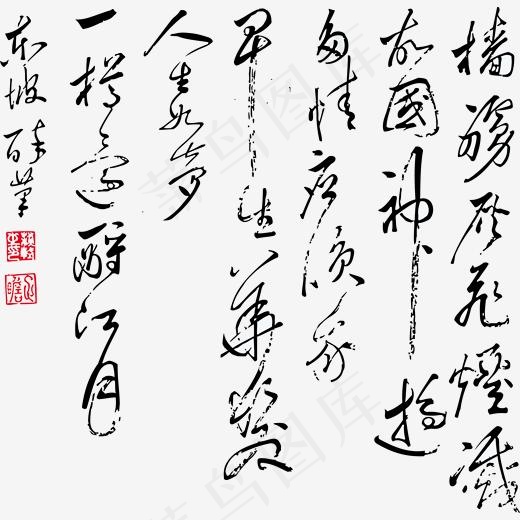 檣艣灰飛煙滅
故國神遊
多情應我
早生華髮
人生如夢
一樽還酹江月
東坡醉筆
菜鸟图库